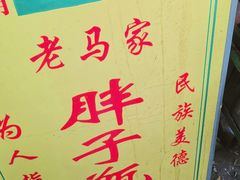 老马家
胖子
民族美德
为人